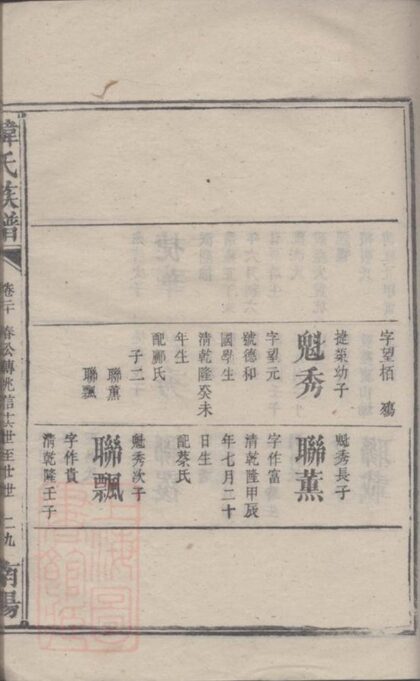 字望栖
捷榮幼子
魁秀
字望元
號德和
國學生
清乾隆癸未
年生
配酈氏
子二
聯薰
聯飄
魁秀長子
聯薰
字作富
清乾隆甲辰
年七月二十
日生
配蔡氏
魁秀次子
聯飄
字作貴
清乾隆壬子
氏族譜
卷二十 春公傳兆信 世至 世 二九
南陽